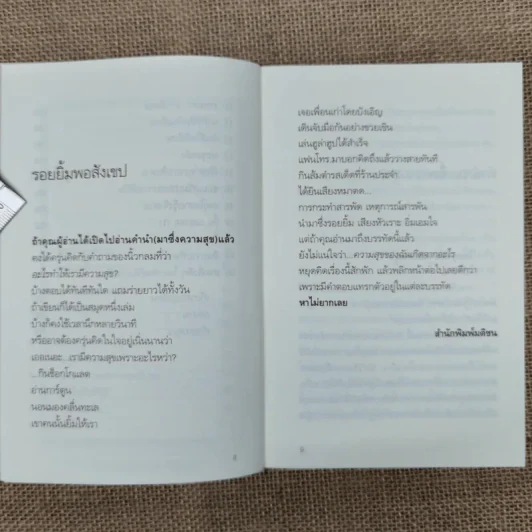 รอยยิ้มพอสังเขป
ถ้าคุณผู้อ่านได้เปิดไปอ่านคำนำ(มาซึ่งความสุข)แล้ว
คงได้ครุ่นคิดกับคำถามของนิ้วกลมที่ว่า
อะไรทำให้เรามีความสุข?
บ้างตอบได้ทันทีทันใด แถมร่ายยาวได้ทั้งวัน
ถ้าเขียนก็ได้เป็นสมุดหนึ่งเล่ม
บ้างก็คงใช้เวลานึกหลายวินาที
หรืออาจต้องครุ่นคิดในใจอยู่เนิ่นนานว่า
เออเนอะ...เรามีความสุขเพราะอะไรหว่า?
...กินช็อกโกแลต
อ่านการ์ตูน
นอนมองคลื่นทะเล
เขาคนนั้นยิ้มให้เรา
เจอเพื่อนเก่าโดยบังเอิญ
เดินจับมือกันอย่างขวยเขิน
เล่นฮูล่าฮูปได้สำเร็จ
แฟนโทร.มาบอกคิดถึงแล้ววางสายทันที
กินส้มตำรสเด็ดที่ร้านประจำ
ได้ยินเสียงหมาตด...
การกระทำสารพัด เหตุการณ์สารพัน
นำมาซึ่งรอยยิ้ม เสียงหัวเราะ อิ่มเอมใจ
แต่ถ้าคุณอ่านมาถึงบรรทัดนี้แล้ว
ยังไม่แน่ใจว่า...ความสุขของฉันเกิดจากอะไร
หยุดคิดเรื่องนี้สักพัก แล้วพลิกหน้าต่อไปเลยดีกว่า
เพราะมีคำตอบแทรกตัวอยู่ในแต่ละบรรทัด
หาไม่ยากเลย
สำนักพิมพ์มติชน